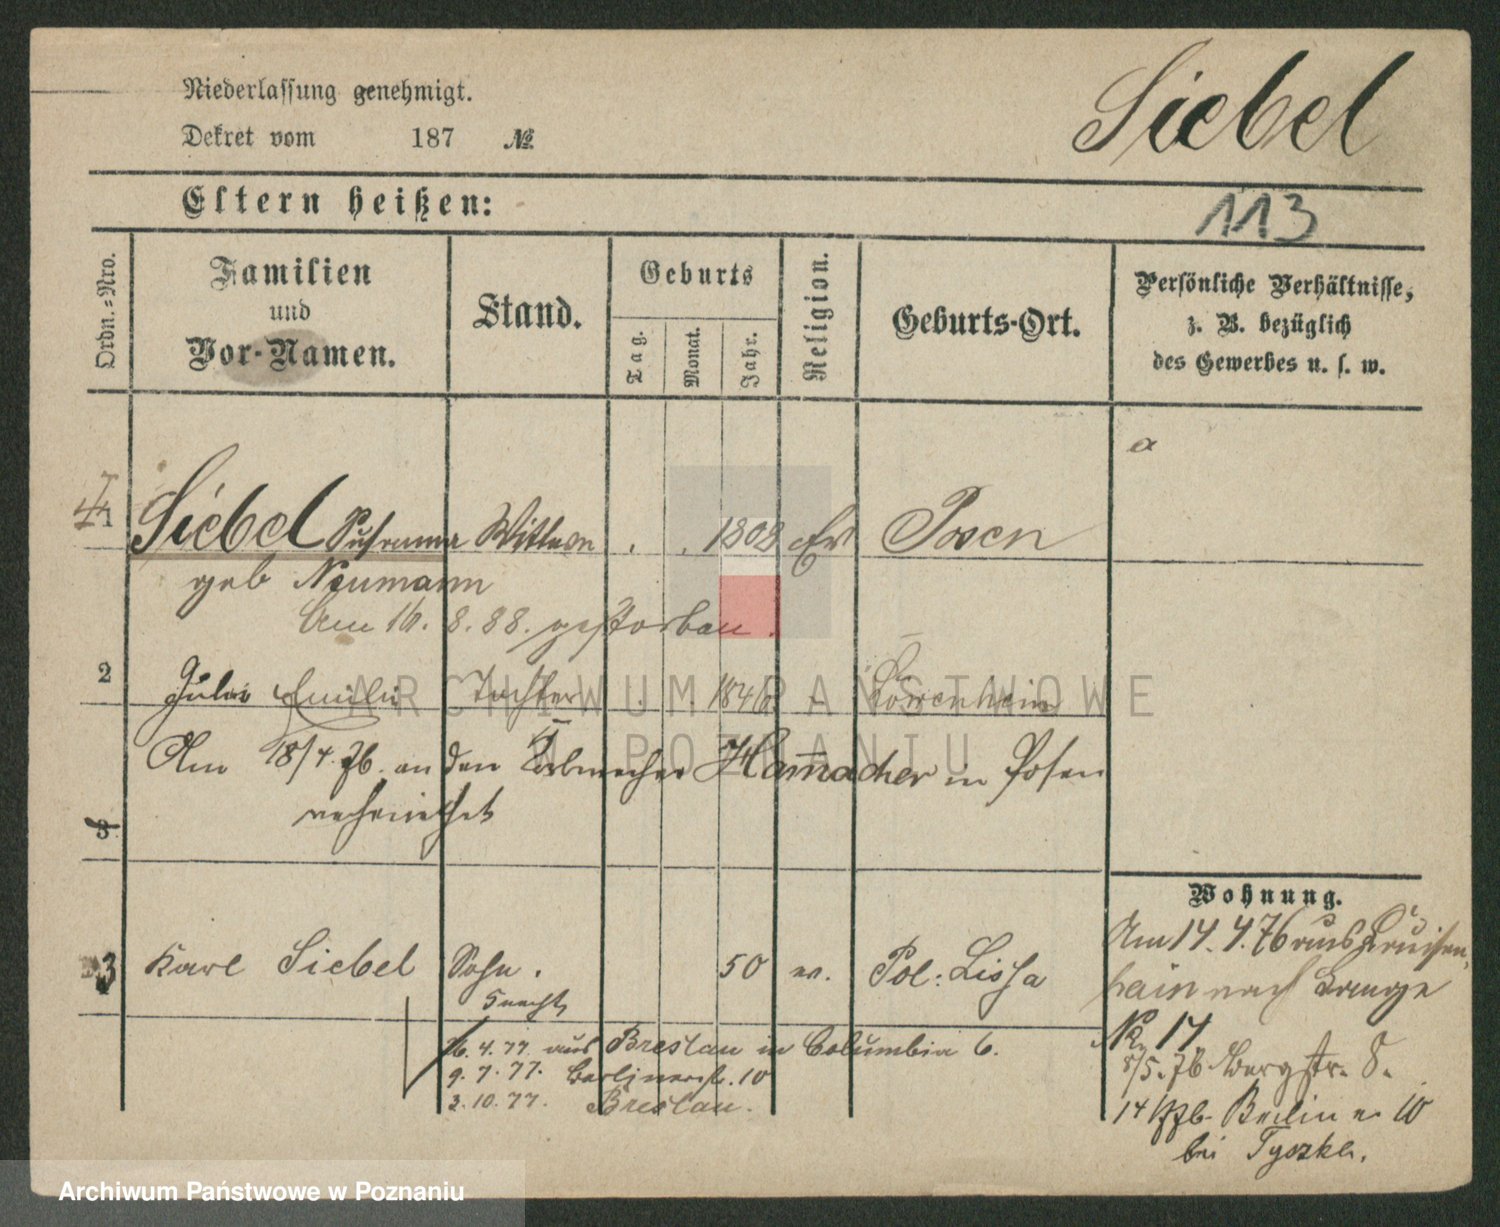 Siebel
Niederlassung genehmigt.
Dekret vom 187 №
Eltern heißen:
113
Ordn.-Nro.
Familien
und
Vor-Namen.
Stand.
Geburts
Tag.
Monat.
Jahr.
Religion.
Geburts-Ort.
Persönliche Verhältnisse,
z. B. bezüglich
des Gewerbes u. s. w.
a
1 Siebel Susanna Wittwe . . 1808 Ev Posen
geb Neumann
Am 16. 8. 88. gestorben.
2 Emilie Tochter 1846
ARCHIWUM PAŃSTWOWE
W POZNANIU
Am 18/4. 76. an den Ham̄acher in Posen
verheirathet
3
Wohnung.
3 Karl Siebel Sohn. 50 ev. Pol: Lissa
Knecht
Am 14. 4. 76 aus
hain nach
№ 14
16. 4. 77. aus Breslau in Columbia 6.
9. 7. 77. Berlinerstr. 10
2. 10. 77. Breslau.
8/5. 76 Bergstr. 8.
14 Berliner 10
bei Tyszke.
Archiwum Państwowe w Poznaniu